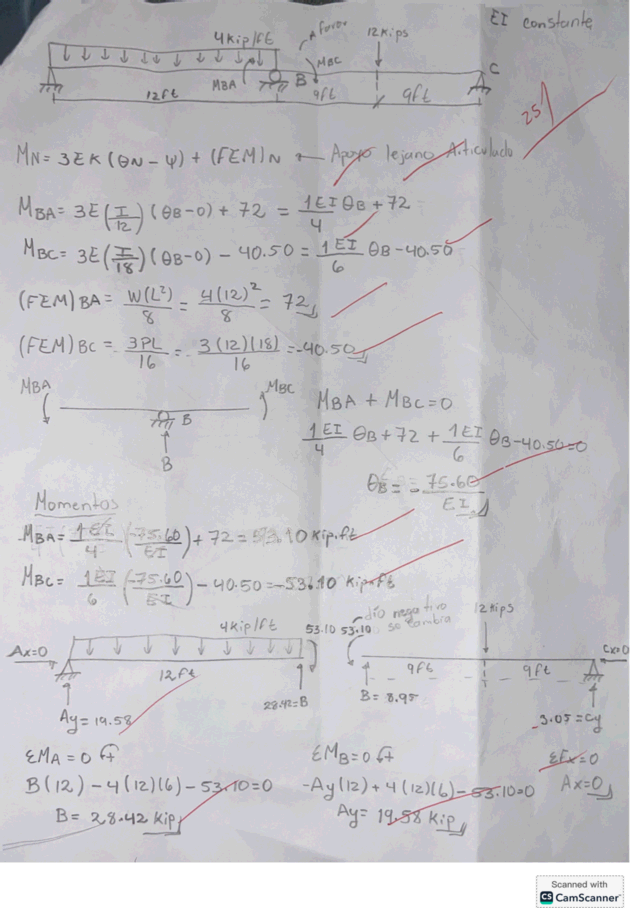 EI constante
4Kip/ft
A favor
12Kips
MBA
B
MBC
C
12ft
9ft
9ft
25
MN = 3EK (θN - Ψ) + (FEM)N ← Apoyo lejano Articulado
MBA = 3E(I/12)(θB-0) + 72 = 1EI/4 θB + 72
MBC = 3E(I/18)(θB-0) - 40.50 = 1EI/6 θB - 40.50
(FEM)BA = W(L²)/8 = 4(12)²/8 = 72
(FEM)BC = 3PL/16 = 3(12)(18)/16 = -40.50
MBA
MBC
B
B
MBA + MBC = 0
1EI/4 θB + 72 + 1EI/6 θB - 40.50 = 0
θB = -75.60/EI
Momentos
MBA = 1EI/4 (-75.60/EI) + 72 = 53.10 Kip.ft
MBC = 1EI/6 (-75.60/EI) - 40.50 = -53.10 Kip.ft
4Kip/ft
53.10
53.10
dio negativo
se cambia
12Kips
Ax=0
Cx=0
12ft
9ft
9ft
28.42=B
B = 8.95
Ay = 19.58
3.05 = Cy
ΣMA = 0
B(12) - 4(12)(6) - 53.10 = 0
B = 28.42 Kip
ΣMB = 0
-Ay(12) + 4(12)(6) - 53.10 = 0
Ay = 19.58 Kip
ΣFx = 0
Ax = 0
Scanned with
CS CamScanner